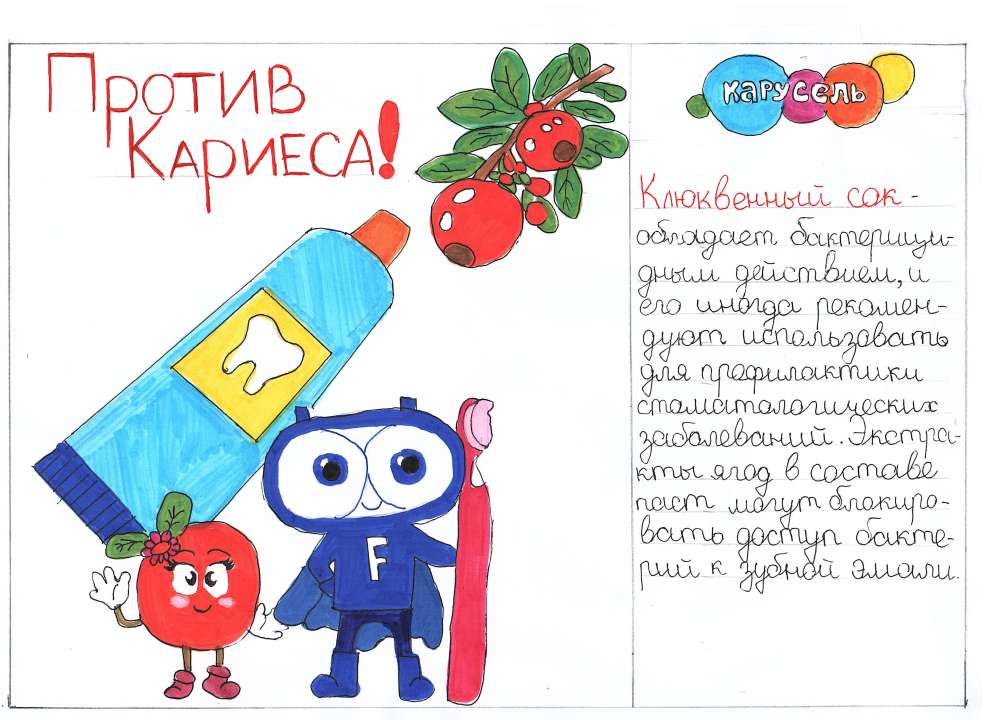 Против
Кариеса!
F
Карусель
Клюквенный сок -
обладает бактерици-
дным действием, и
его иногда рекомен-
дуют использовать
для профилактики
стоматологических
заболеваний. Экстра-
кты ягод в составе
паст могут блокиро-
вать доступ бакте-
рий к зубной эмали.